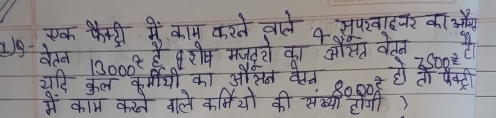 Q19- एक फैक्ट्री में काम करने वाले 4 सुपरवाइजर का औसत
वेतन 13000₹ है व शेष मजदूरो का औसत वेतन 7500₹ है।
यदि कुल कर्मीयो का औसत वेतन 8000₹ हो तो फैक्ट्री
में काम करने वाले कर्मियो की संख्या होगी ?